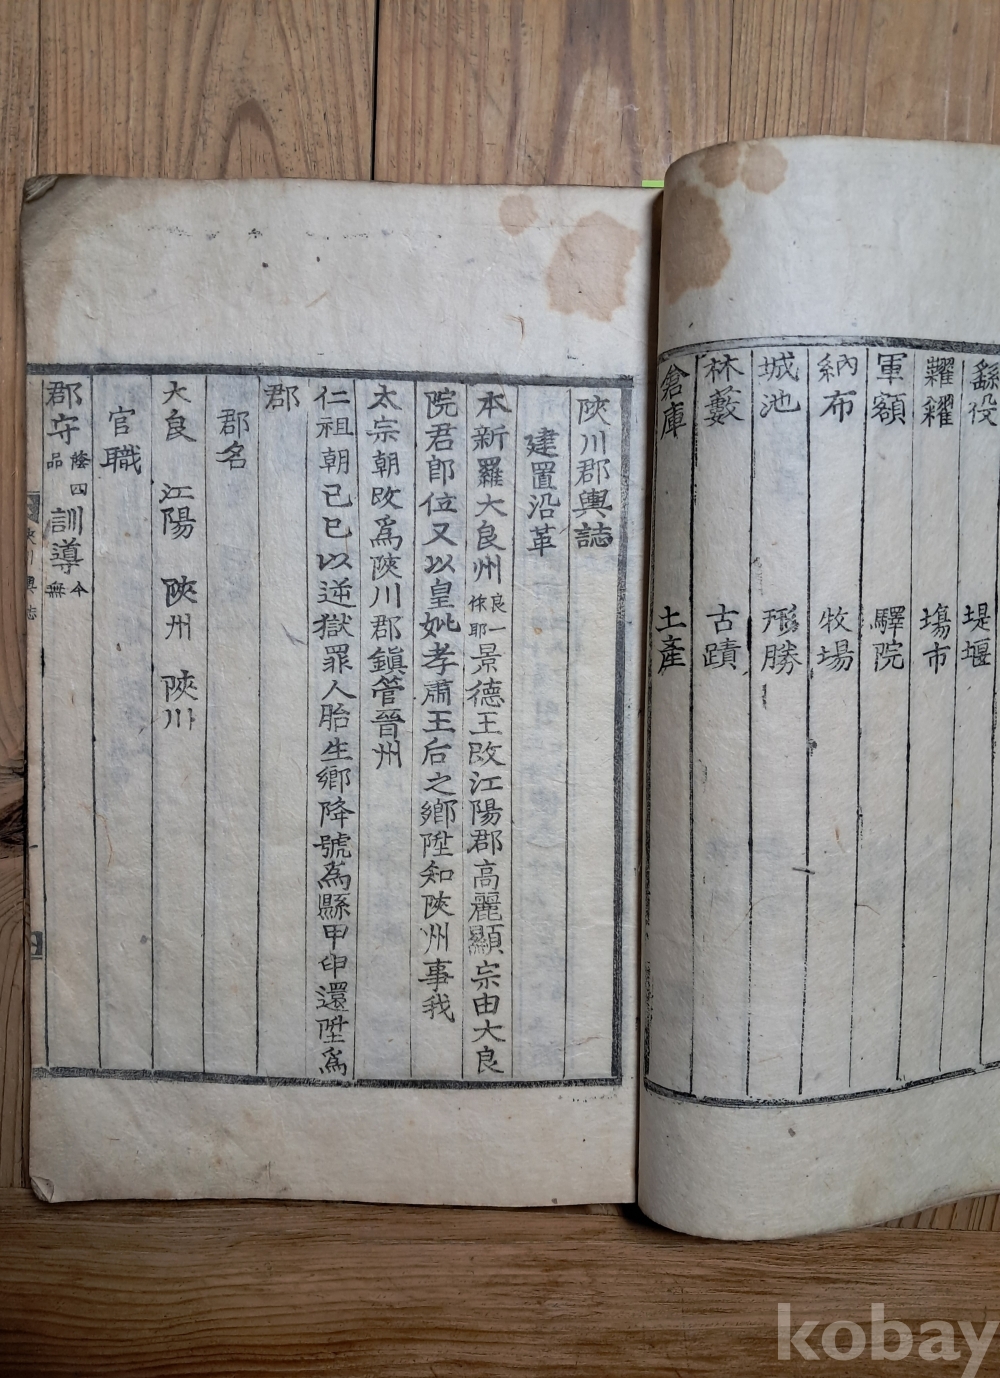 繇役 堤堰
糶糴 場市
軍額 驛院
納布 牧場
城池 形勝
林藪 古蹟
倉庫 土產
陜川郡輿誌
建置沿革
本新羅大良州良一作耶景德王改江陽郡高麗顯宗由大良
院君卽位又以皇妣孝肅王后之鄕陞知陜州事我
太宗朝改爲陜川郡鎭管晉州
仁祖朝己巳以逆獄罪人胎生鄕降號爲縣甲申還陞爲
郡
郡名
大良 江陽 陜州 陜川
官職
郡守蔭四品 訓導今無
陜川輿誌
kobay